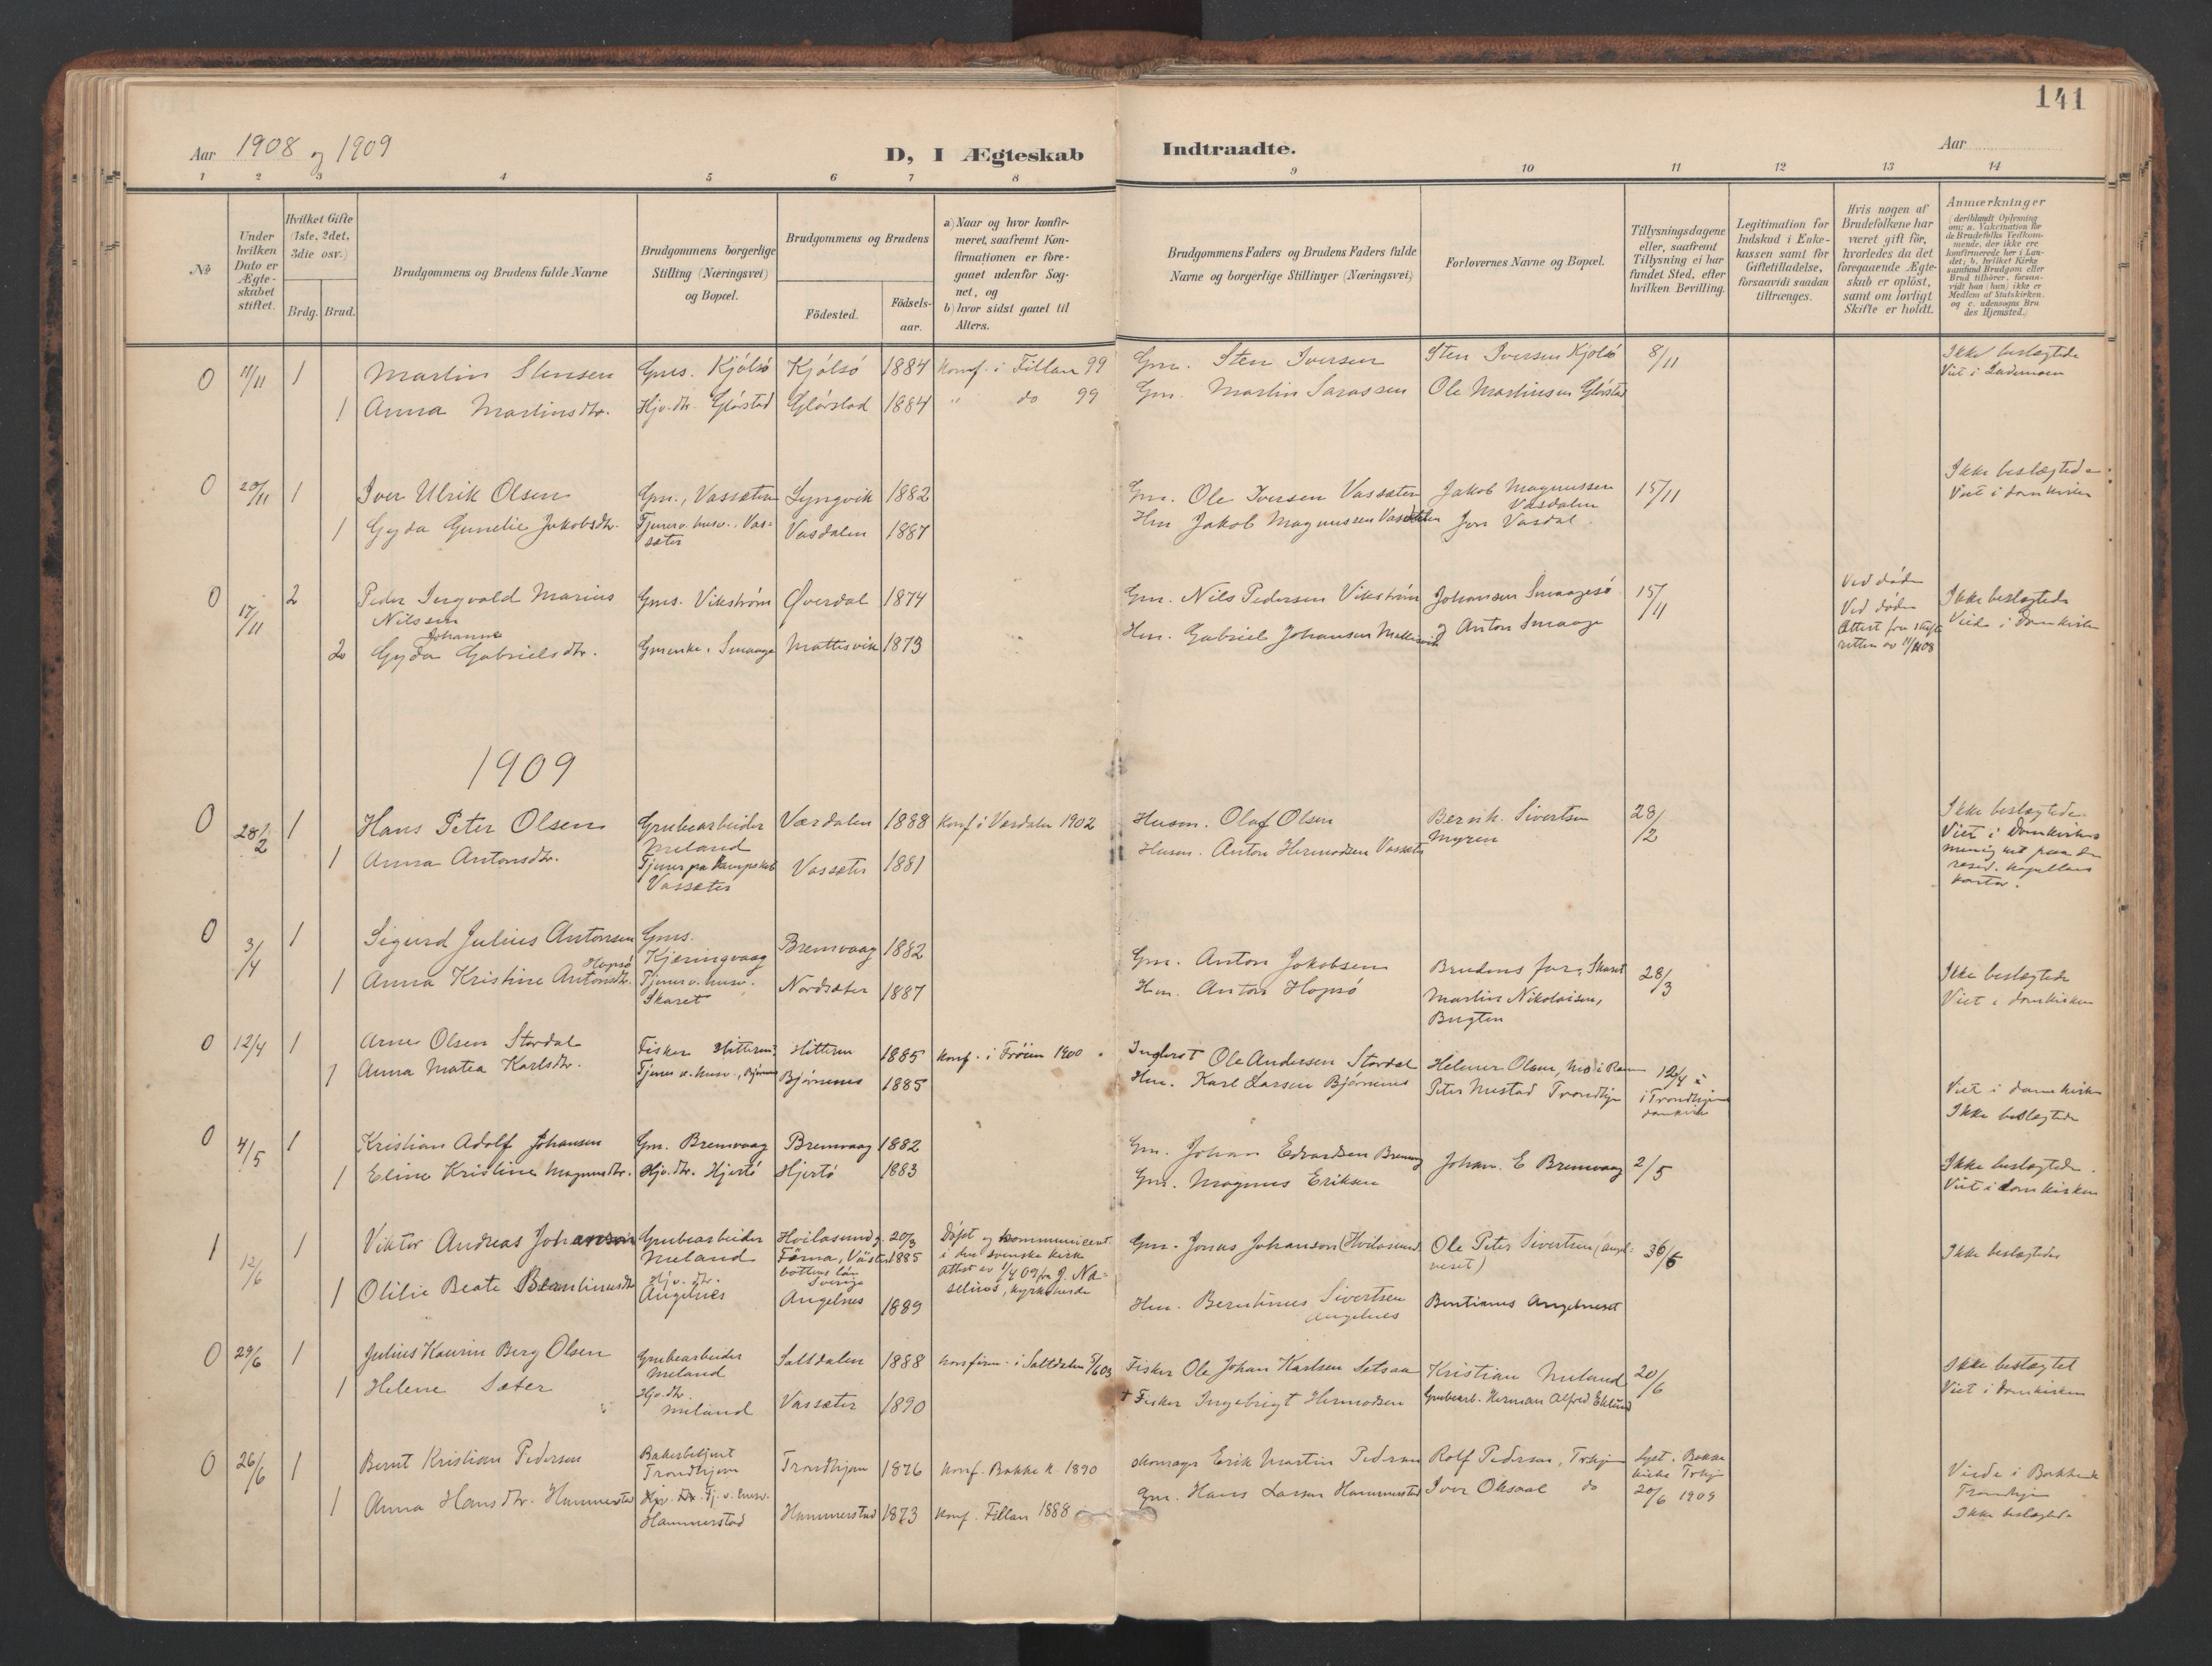 141
Aar 1908 og 1909
D, I Ægteskab Indtraadte.
Aar
1 2 3 4 5 6 7 8 9 10 11 12 13 14
No
Under hvilken Dato er Ægteskabet stiftet.
Hvilket Gifte (1ste, 2det, 3die osv.)
Brdg. Brud.
Brudgommens og Brudens fulde Navne
Brudgommens borgerlige Stilling (Næringsvei) og Bopæl.
Brudgommens og Brudens
Födested. Födselsaar.
a) Naar og hvor konfirmeret, saafremt Konfirmationen er foregaaet udenfor Sognet, og
b) hvor sidst gaael til Alters.
Brudgommens Faders og Brudens Faders fulde Navne og borgerlige Stillinger (Næringsvei)
Forlovernes Navne og Bopæl.
Tillysningsdagene eller, saafremt Tillysning ei har fundet Sted, efter hvilken Bevilling.
Legitimation for Indskud i Enkekassen samt for Giftetilladelse, forsaavidt saadan tiltrænges.
Hvis nogen af Brudefolkene har været gift för, hvorledes da det foregaaende Ægteskab er oplöst, samt om lovligt Skifte er holdt.
Anmærkninger
(deriblandt Oplysning om: a. Vakcination for de Brudefolks Vedkommende, der ikke ere konfirmerede her i Landet; b. hvilket Kirkesamfund Brudgom eller Brud tilhörer, forsaavidt han (hun) ikke er Medlem af Statskirken. og c. udensogns Brudes Hjemsted.)
0 11/11 1 Martin Stensen Gms. Kjölsö Kjölsö 1884 Konf. i Fillan 99 Gm. Sten Iversen Sten Iversen Kjölsö 8/11 Ikke beslægtede
Viet i Lademoen
1 Anna Martinsdtr. Hjv. dtr. Glörstad Glörstad 1884 " do 99 Gm. Martin Sarassen Ole Martinsen Glörstad
0 20/11 1 Iver Ulrik Olsen Gm., Vassæter Lyngvik 1882 Gm. Ole Iversen Vassæter Jakob Magnussen Vasdalen 15/11 Ikke beslægtede
Viet i domkirken
1 Gyda Gunelie Jakobsdtr. Tjener v. husv. Vassæter Vasdalen 1887 Hm Jakob Magnussen Vasdalen Jon Vasdal.
0 17/11 2 Peder Ingvald Marius Nilssen Gms. Vikström Øverdal 1874 Gm. Nils Pedersen Vikström Johansen Smaagesö 15/11 Ved döde Ikke beslægtede
2 Gyda Johanne Gabrielsdtr. Gmenke. Smaage Mattisvik 1873 Hm. Gabriel Johansen Mattisvik og Anton Smaage Ved döde
Attest fra skifteretten av 11/11 08 Viede i domkirken
1909
0 28/2 1 Hans Peter Olsen Grubearbeider Meland Værdalen 1888 Konf i Værdalen 1902 Husm. Olaf Olsen Bernh. Sivertsen Myren 28/2 Ikke beslægtede.
Viet i Domkirkens menighet paa den resid. kapellans kontor.
1 Anna Antonsdtr. Tjener paa Dampskib Vassæter Vassæter 1881 Husm. Anton Hermodsen Vassæter
0 3/4 1 Sigurd Julius Antonsen Gms. Kjæringvaag Bremvaag 1882 Gm. Anton Jakobsen Brudens far, Skaret 28/3 Ikke beslægtede
Viet i domkirken
1 Anna Kristine Antonsdtr. Hopsö Tjener v. husv. Skaret Nordsæter 1887 Hm. Anton Hopsö Martin Nikolaisen, Bugten
0 12/4 1 Arne Olsen Stordal Fisker Hitteren Hitteren 1885 Konf. i Fröien 1900 Ole Andersen Stordal Helmer Olsen, Mo i Ranen 12/4 i Trondhjems domkirke Viet i domkirken
1 Anna Matea Karlsdtr. Tjener v. husv., Bjørnenes Bjørnenes 1885 Hm. Karl Larsen Bjørnenes Peter Mestad Trondhjem Ikke beslægtede
0 4/5 1 Kristian Adolf Johansen Gm. Bremvaag Bremvaag 1882 Gm. Johan Edvardsen Bremvaag Johan. E Bremvaag 2/5 Ikke beslægtede.
Viet i domkirken
1 Eline Kristine Magnusdtr. Hjv. dtr. Hjertö Hjertö 1883 Gm. Magnus Eriksen
1 12/6 1 Viktor Andreas Johanson Grubearbeider Meland Hvilasund, Tärna, Västerbottens län Sverige 20/3 1885 Döpt og kommunicent i den svenske kirke attest av 1/4 09 fra J. Naselius, kyrkoherde Gm. Jonas Johanson (Hvilasund) Ole Peter Sivertsen (Angelneset) 30/5 Ikke beslægtede
1 Otilie Beate Berntinusdtr Hjv. dtr. Angelnes Angelnes 1889 Hm. Berntinus Sivertsen Angelnes Berntinus Angelneset
0 29/6 1 Julius Kaurin Berg Olsen Grubearbeider Meland Saltdalen 1888 Konfirm. i Saltdalen 03 Fisker Ole Johan Karlsen Setsaa Kristian Meland 20/6 Ikke beslægtet
Viet i domkirken
1 Helene Sæter Hjv. dtr. Meland Vassæter 1890 + Fisker Ingebrigt Hermodsen Grubearb. Herman Alfred Eklund
0 26/6 1 Bernt Kristian Pedersen Bakerbetjent Trondhjem Trondhjem 1876 Konf. Bakke K. 1890 Skomager Erik Martin Pedersen Rolf Pedersen, Trhjem Lyst. Bakke kirke Trhjm 20/6 1909 Viede i Bakke k Trondhjem
Ikke beslægtede
1 Anna Hansdtr. Hammerstad Hjv. dtr. Tj. v. husv. Hammerstad Hammerstad 1873 Konf. Fillan 1888 Gm. Hans Larsen Hammerstad Iver Oksaal do